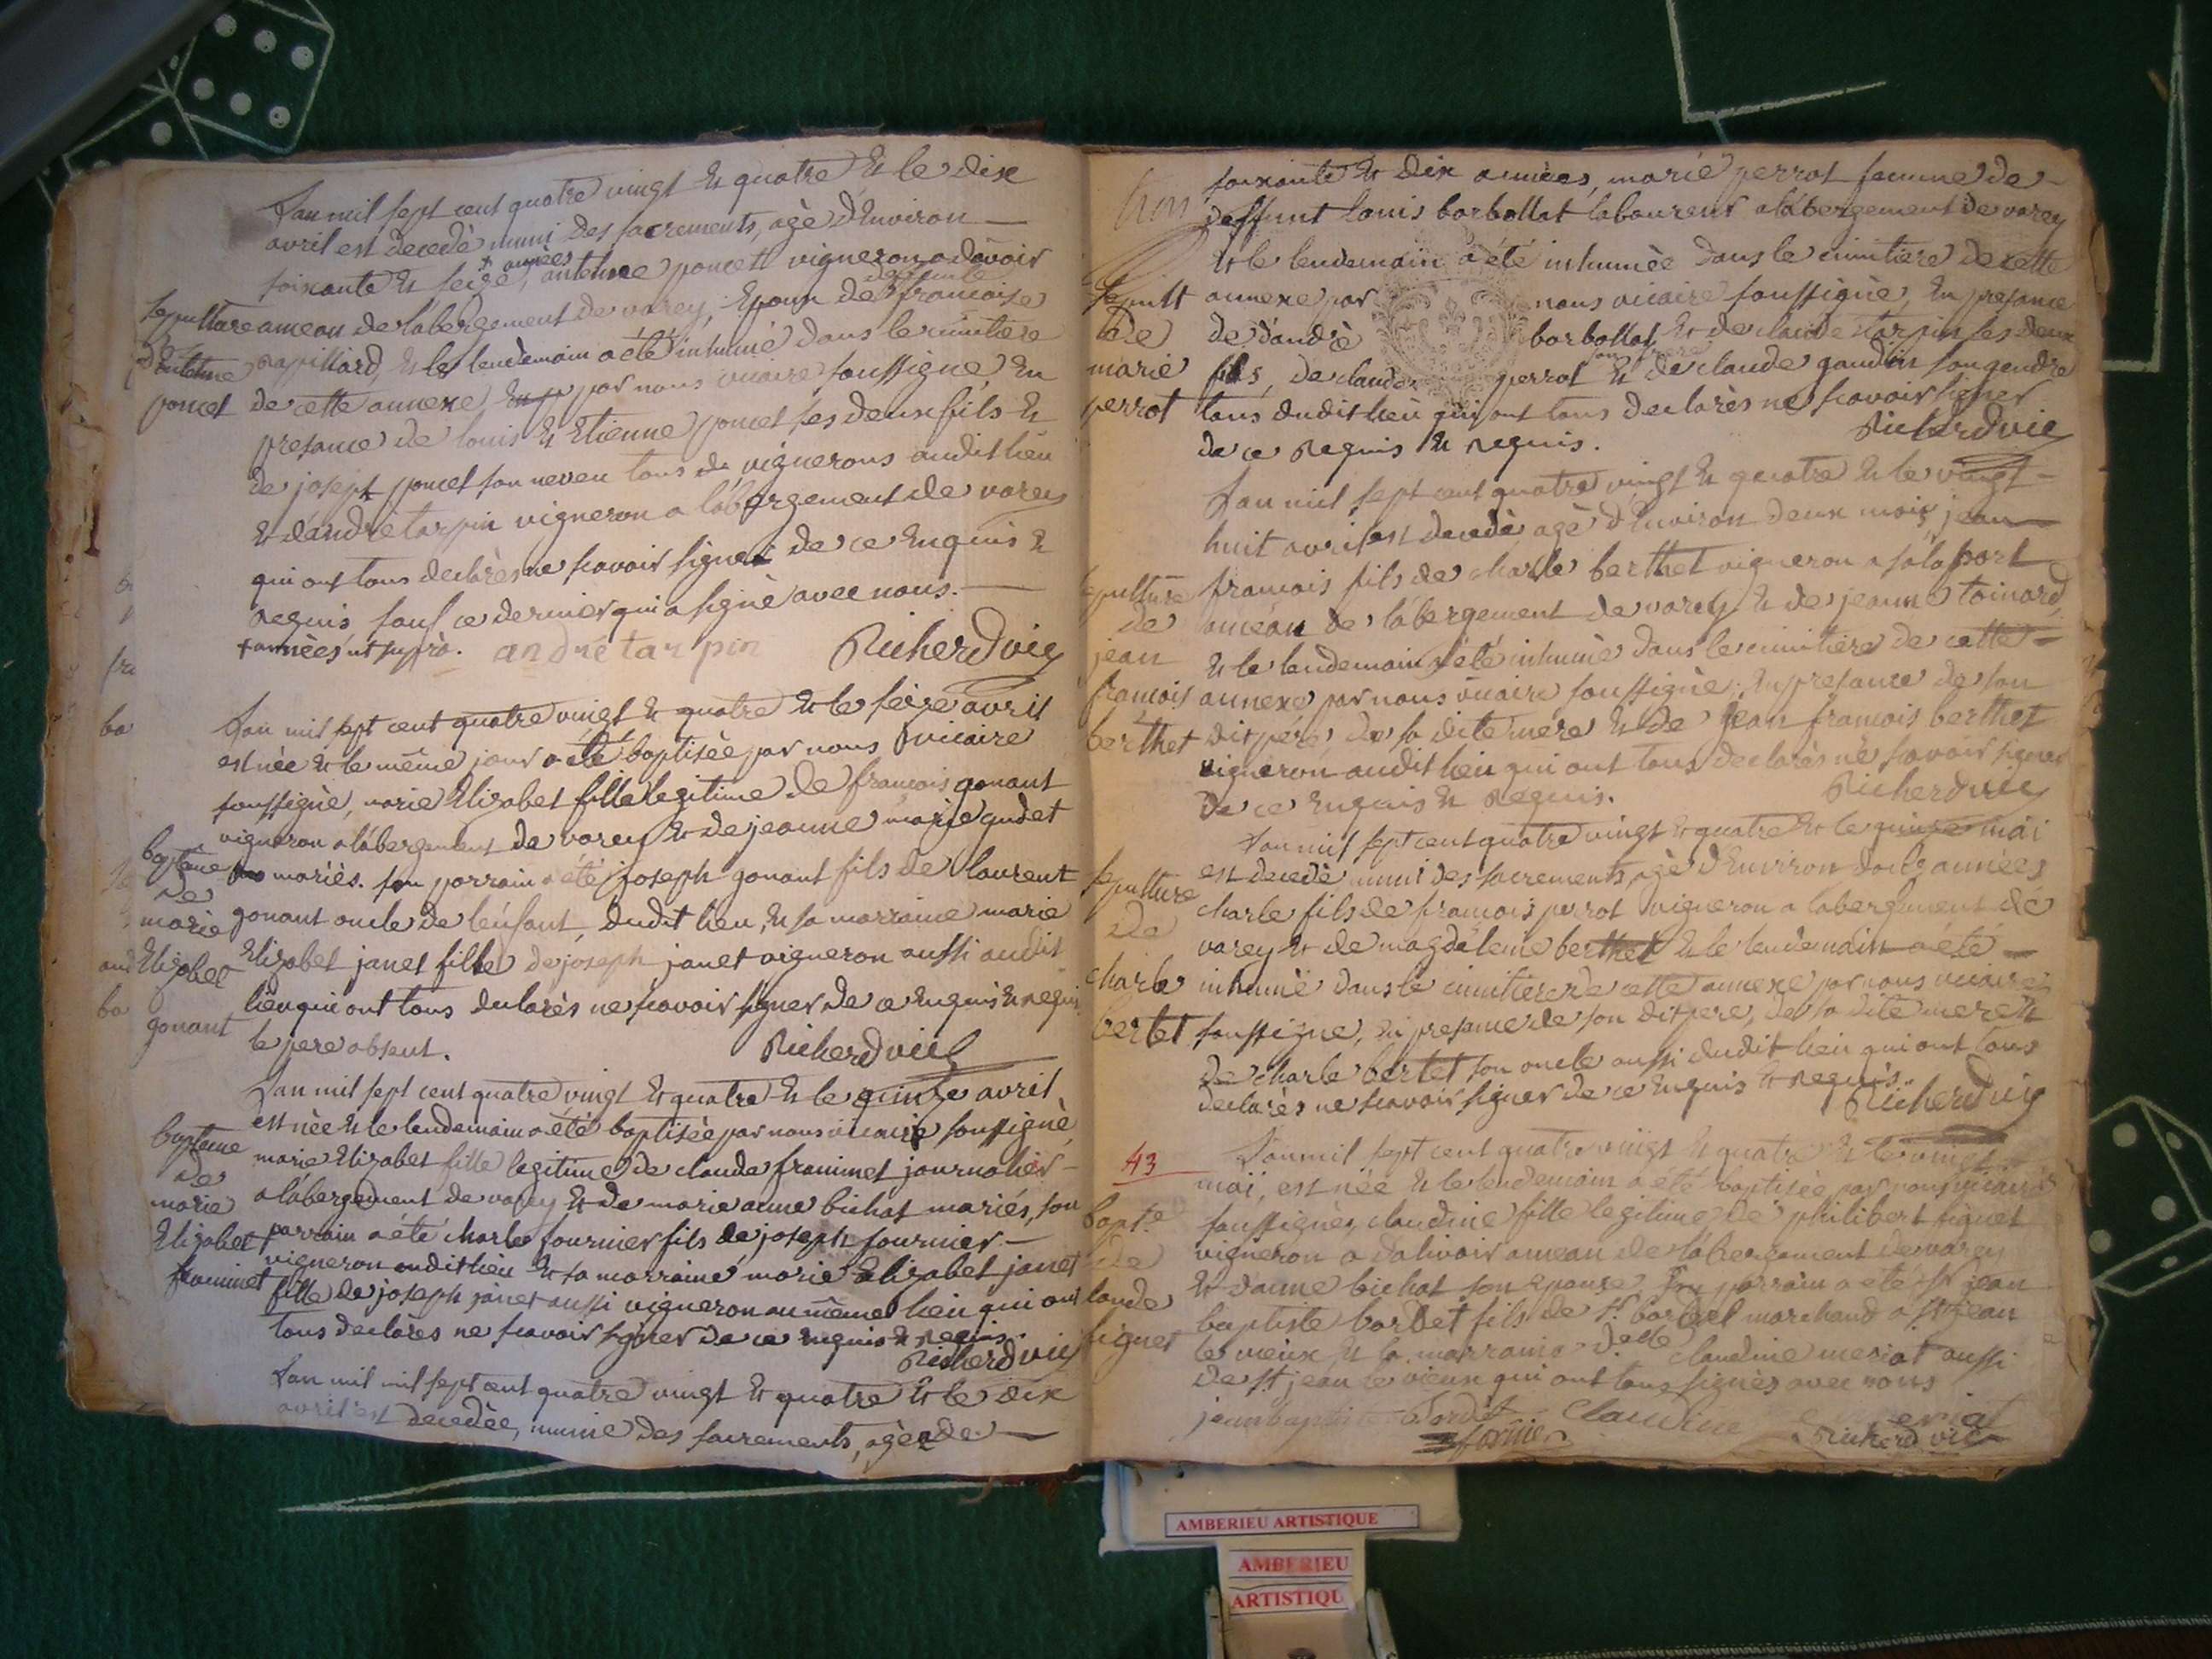 Lan mil sept cent quatre vingt et quatre et le dix
avril est decedè muni des sacrements, agè d'environ
soixante et seize, antelme poncet vigneron a
+ années
deffunte
sepulture
ameau de labergement de varey, Epoux de françoise
d'antelme
papillard, et le lendemain a eté inhumé dans le cimitiere
poncet
de cette annexe par nous vicaire soussigné, En
presance de louis et Etienne poncet ses deux fils et
de joseph poncet son neveu tous vignerons audit lieu
et d'andrè tarpin vigneron a labergement de varey
qui ont tous declarès ne scavoir signer de ce enquis et
requis sauf ce dernier qui a signè avec nous.
+ années ut suprà. andré tarpin Richerd vic
Lan mil sept cent quatre vingt et quatre et le seize avril
est née et le même jour a eté baptisèe par nous vicaire
soussignè, marie Elizabet fille legitime de francois gonant
vigneron a labergement de varey et de jeanne marie gudet
bapteme
mariès. son parrain a eté joseph gonant fils de laurent
de
marie
gonant oncle de l'enfant, dudit lieu, et sa marraine marie
Elizabet
Elizabet janet fille de joseph janet vigneron aussi audit
lieu qui ont tous declarès ne scavoir signer de ce enquis et requis
gonant
le pere absent. Richerd vic
Lan mil sept cent quatre vingt et quatre et le quinze avril
est nèe et le lendemain a eté baptisèe par nous vicaire soussignè
bapteme
marie Elizabet fille legitime de claude framinet journalier
de
a labergement de varey et de marie anne bichat mariés, son
marie
parrain a eté charle fournier fils de joseph fournier
Elizabet
vigneron audit lieu et sa marraine marie elizabet janet
framinet
fille de joseph janet aussi vigneron au même lieu qui ont
tous declarès ne scavoir signer de ce enquis et requis.
Richerd vic
Lan mil mil sept cent quatre vingt et quatre et le dix
avril est decedèe, munie des sacrements, agèe de
soixante et dix années, marie perrot femme de
deffunt louis barbollat laboureur a labergement de varey
et le lendemain a eté inhumèe dans le cimitiere de cette
sepult
annexe par nous vicaire soussignè, En presance
de
de d'andrè barbollat et de claude tarpin ses deux
son frere
marie
fils, de claude perrot et de claude gaudin son gendre
perrot
tous dudit lieu qui ont tous declarès ne scavoir signer
de ce requis et requis. Richerd vic
Lan mil sept cent quatre vingt et quatre et le vingt
huit avril est decedè agè d'environ deux mois jean
sepulture
francois fils de charle berthet vigneron a port
de
ameau de labergement de varey et de jeanne toinard
jean
et le lendemain a eté inhumè dans le cimitiere de cette
francois
annexe par nous vicaire soussignè, En presance de son
berthet
dit pere, de sa dite mere et de jean francois berthet
vigneron audit lieu qui ont tous declarès ne scavoir signer
de ce enquis et requis. Richerd vic
Lan mil sept cent quatre vingt et quatre et le quinze mai
est decedè muni des sacrements, agè d'environ années
sepulture
charle fils de francois perrot vigneron a labergement de
de
varey et de magdeleine berthet et le lendemain a eté
charle
inhumè dans le cimitiere de cette annexe par nous vicaire
bertet
soussignè, En presance de son dit pere, de sa dite mere et
de charle bertet son oncle aussi dudit lieu qui ont tous
declarès ne scavoir signer de ce enquis et requis.
Richerd vic
43
Lan mil sept cent quatre vingt et quatre et le vingt
mai, est née et le lendemain a eté baptisèe par nous vicaire
bapt.e
soussignès, claudine fille legitime de philibert signet
de
vigneron a dalivoir ameau de labergement de varey
et d'anne bichat son epouse, son parrain a eté sr jean
laude
baptiste bardet fils de sr bardet marchand a st jean
signet
le vieux et la marraine d.elle claudine meriat aussi
de st jean le vieux qui ont tous signès avec nous
jean baptiste Bardet Claudine meriat
Richerd vic
AMBERIEU ARTISTIQUE
AMBERIEU
ARTISTIQU